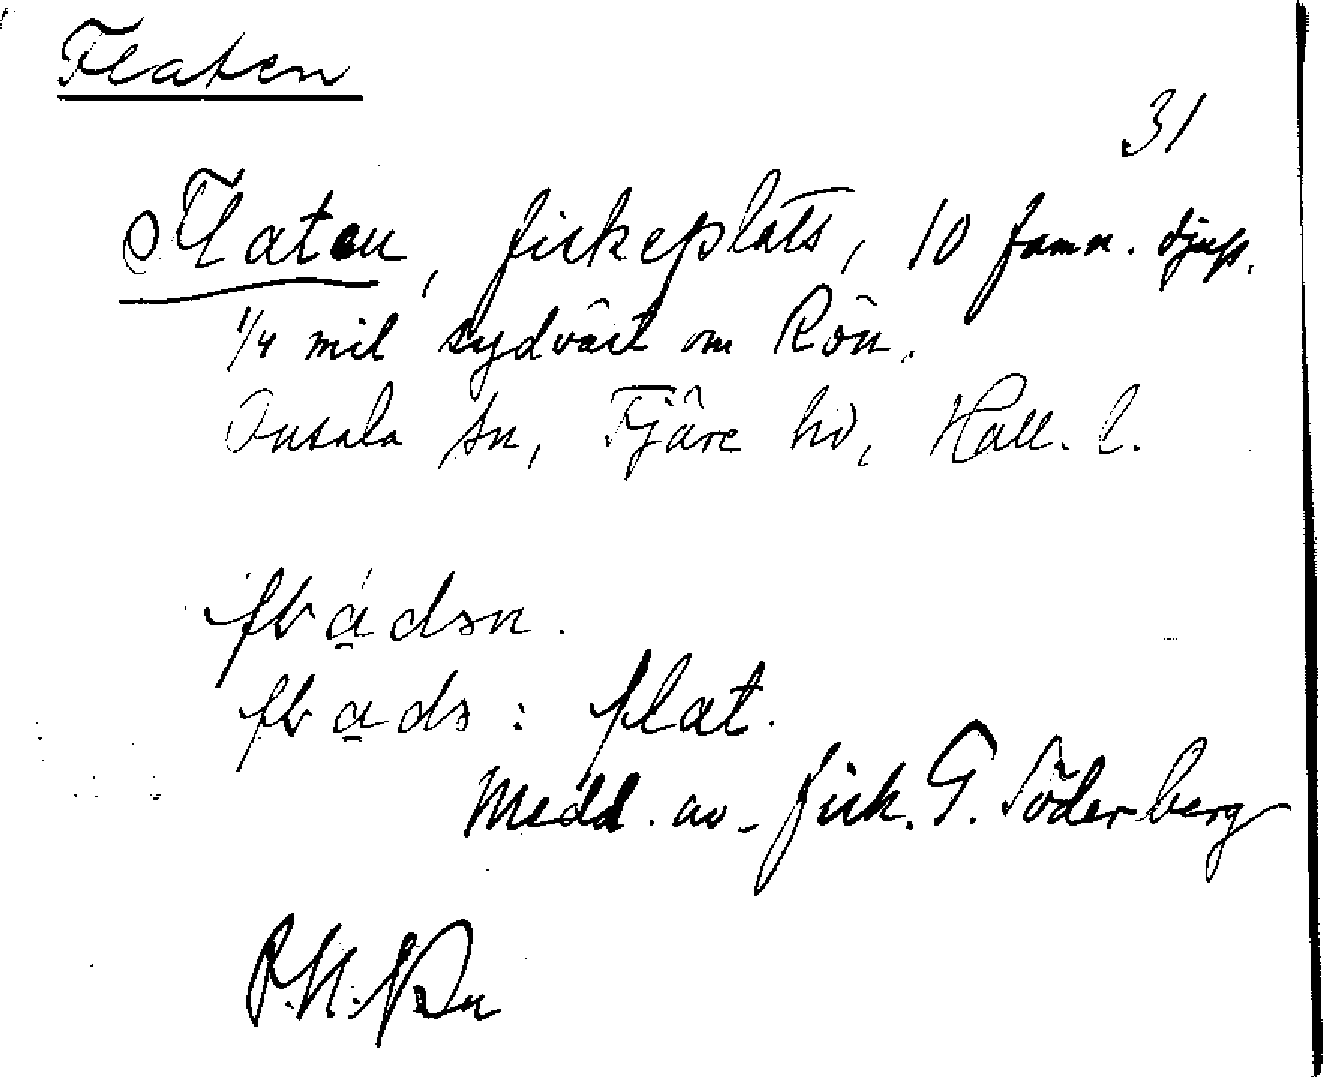 Flaten
31
Flaten, fiskeplats, 10 famn. djup.
1/4 mil sydväst om Rön.
Onsala sn, Fjäre hd, Hall. l.
flat.
Medd. av fisk. G. Söderberg